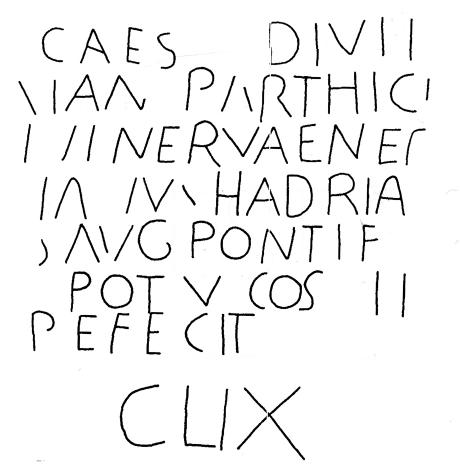 CAES DIVI
IAN PARTHICI
NERVAE NE
IA HADRIA
AVG PONTIF
POT V COS II
PEFECIT
CLIX